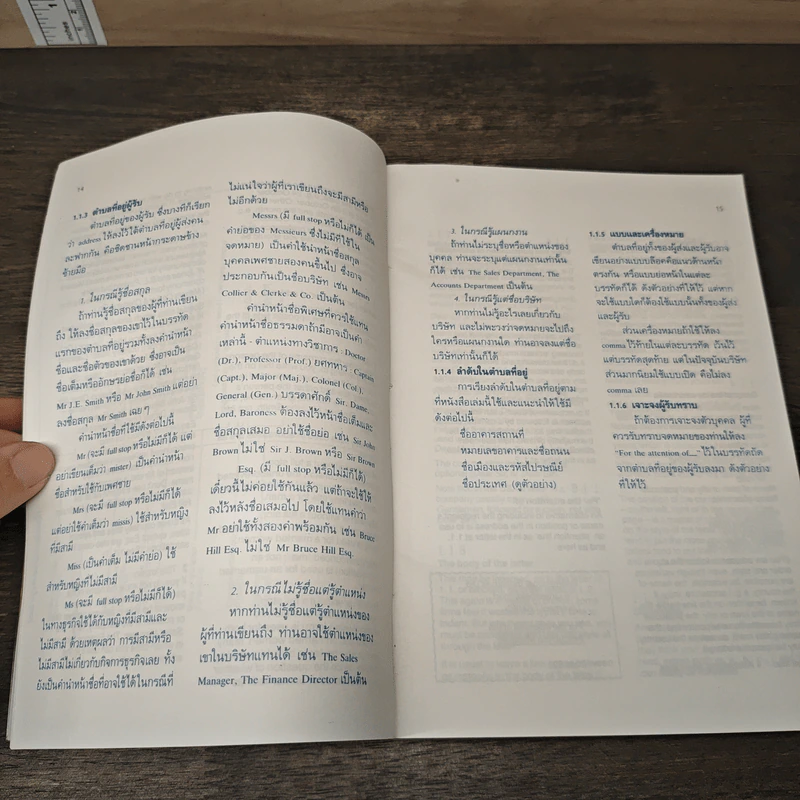 inches
1
2
14
1.1.3 ตำบลที่อยู่ผู้รับ
ตำบลที่อยู่ของผู้รับ ซึ่งบางทีก็เรียก
ว่า address ให้ลงไว้ใต้ตำบลที่อยู่ผู้ส่งคน
ละฟากกัน คือชิดซานหน้ากระดาษข้าง
ซ้ายมือ
1. ในกรณีรู้ชื่อสกุล
ถ้าท่านรู้ชื่อสกุลของผู้ที่ท่านเขียน
ถึง ให้ลงชื่อสกุลของเขาไว้ในบรรทัด
แรกของตำบลที่อยู่รวมทั้งลงคำนำหน้า
ชื่อและชื่อตัวของเขาด้วย ซึ่งอาจเป็น
ชื่อเต็มหรืออักษรย่อชื่อก็ได้ เช่น
Mr J.E. Smith หรือ Mr John Smith แต่อย่า
ลงชื่อสกุล Mr Smith เฉย ๆ
คำนำหน้าชื่อที่ใช้มีดังต่อไปนี้
Mr (จะมี full stop หรือไม่มีก็ได้ แต่
อย่าเขียนเต็มว่า mister) เป็นคำนำหน้า
ชื่อสำหรับใช้กับเพศชาย
Mrs (จะมี full stop หรือไม่มีก็ได้
แต่อย่าใช้คำเต็มว่า missis) ใช้สำหรับหญิง
ที่มีสามี
Miss (เป็นคำเต็ม ไม่มีคำย่อ) ใช้
สำหรับหญิงที่ไม่มีสามี
Ms (จะมี full stop หรือไม่มีก็ได้)
ในทางธุรกิจใช้ได้กับหญิงที่มีสามีและ
ไม่มีสามี ด้วยเหตุผลว่า การมีสามีหรือ
ไม่มีสามีไม่เกี่ยวกับกิจการธุรกิจเลย ทั้ง
ยังเป็นคำนำหน้าชื่อที่อาจใช้ได้ในกรณีที่
ไม่แน่ใจว่าผู้ที่เราเขียนถึงจะมีสามีหรือ
ไม่อีกด้วย
Messrs (มี full stop หรือไม่ก็ได้ เป็น
คำย่อของ Messieurs ซึ่งไม่มีที่ใช้ใน
จดหมาย) เป็นคำใช้นำหน้าชื่อสกุล
บุคคลเพศชายสองคนขึ้นไป ซึ่งอาจ
ประกอบกันเป็นชื่อบริษัท เช่น Messrs
Collier & Clerke & Co. เป็นต้น
คำนำหน้าชื่อพิเศษที่ควรใช้แทน
คำนำหน้าชื่อธรรมดาถ้ามีอาจเป็นคำ
เหล่านี้ - ตำแหน่งทางวิชาการ Doctor
(Dr.), Professor (Prof.) ยศทหาร Captain
(Capt.), Major (Maj.), Colonel (Col.),
General (Gen.) บรรดาศักดิ์ Sir, Dame,
Lord, Baroness ต้องลงไว้หน้าชื่อเต็มและ
ชื่อสกุลเสมอ อย่าใช้ชื่อย่อ เช่น Sir John
Brown ไม่ใช่ Sir J. Brown หรือ Sir Brown
Esq. (มี full stop หรือไม่มีก็ได้)
เดี๋ยวนี้ไม่ค่อยใช้กันแล้ว แต่ถ้าจะใช้ให้
ลงไว้หลังชื่อเสมอไป โดยใช้แทนคำว่า
Mr อย่าใช้ทั้งสองคำพร้อมกัน เช่น Bruce
Hill Esq. ไม่ใช่ Mr Bruce Hill Esq.
2. ในกรณีไม่รู้ชื่อแต่รู้ตำแหน่ง
หากท่านไม่รู้ชื่อแต่รู้ตำแหน่งของ
ผู้ที่ท่านเขียนถึง ท่านอาจใช้ตำแหน่งของ
เขาในบริษัทแทนได้ เช่น The Sales
Manager, The Finance Director เป็นต้น
15
3. ในกรณีรู้แผนกงาน
ถ้าท่านไม่ระบุชื่อหรือตำแหน่งของ
บุคคล ท่านจะระบุแต่แผนกงานเท่านั้น
ก็ได้ เช่น The Sales Department, The
Accounts Department เป็นต้น
4. ในกรณีรู้แต่ชื่อบริษัท
หากท่านไม่รู้อะไรเลยเกี่ยวกับ
บริษัท และไม่พะวงว่าจดหมายจะไปถึง
ใครหรือแผนกงานใด ท่านอาจลงแต่ชื่อ
บริษัทเท่านั้นก็ได้
1.1.4 ลำดับในตำบลที่อยู่
การเรียงลำดับในตำบลที่อยู่ตาม
ที่หนังสือเล่มนี้ใช้และแนะนำให้ใช้มี
ดังต่อไปนี้
ชื่ออาคารสถานที่
หมายเลขอาคารและชื่อถนน
ชื่อเมืองและรหัสไปรษณีย์
ชื่อประเทศ (ดูตัวอย่าง)
1.1.5 แบบและเครื่องหมาย
ตำบลที่อยู่ทั้งของผู้ส่งและผู้รับอาจ
เขียนอย่างแบบบล็อคคือแนวด้านหน้า
ตรงกัน หรือแบบย่อหน้าในแต่ละ
บรรทัดก็ได้ ดังตัวอย่างที่ให้ไว้ แต่หาก
จะใช้แบบใดก็ต้องใช้แบบนั้นทั้งของผู้ส่ง
และผู้รับ
ส่วนเครื่องหมายถ้าใช้ให้ลง
comma ไว้ท้ายในแต่ละบรรทัด เว้นไว้
แต่บรรทัดสุดท้าย แต่ในปัจจุบันบริษัท
ส่วนมากนิยมใช้แบบเปิด คือไม่ลง
comma เลย
1.1.6 เจาะจงผู้รับทราบ
ถ้าต้องการเจาะจงตัวบุคคล ผู้ที่
ควรรับทราบจดหมายของท่านให้ลง
"For the attention of...." ไว้ในบรรทัดถัด
จากตำบลที่อยู่ของผู้รับลงมา ดังตัวอย่าง
ที่ให้ไว้